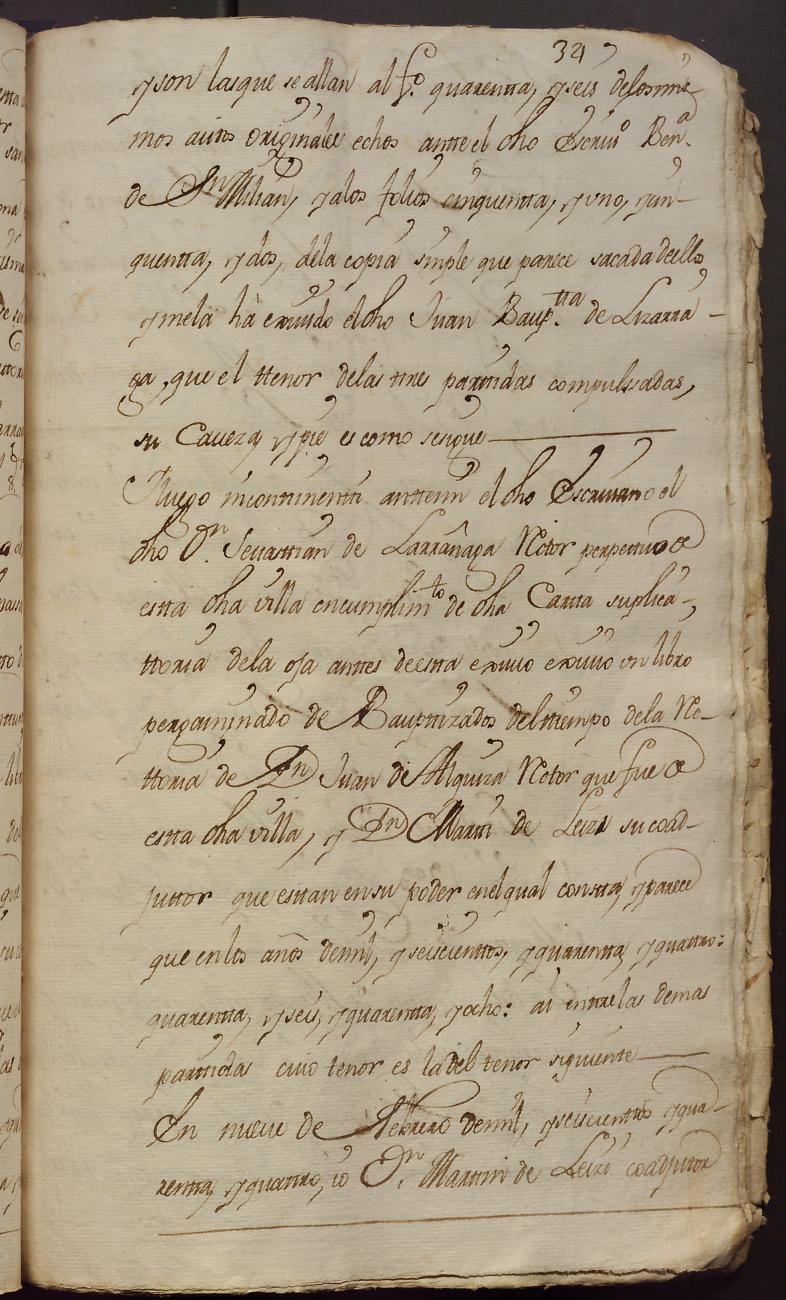 34
y son las que se allan al f.º quarentta, y seis de los mis-
mos autos originales echos antte el dho Escriu.º Ben.ª
de Sn Milian, y a los folios cinquentta, y uno, y zin-
quentta, y dos, de la copia simple que parece sacada de ellos
y me la hà exiuido el dho Juan Baup.tta de Lizarra-
ga, que el ttenor de las ttres parttidas compulssadas,
su Caueza y pie es como se sigue
Y luego incontinentti antte mi el dho Escriuano el
dho D.n Seuasttian de Larrañaga Rettor perpettuo de
estta dha villa en cumplim.to de dha Cartta suplica-
ttoria de la oja anttes de estta exiuio exiuio un libro
pergaminado de Baupttizados del ttiempo de la Re-
ttoria de Dn Juan de Alquiza Rettor que fue de
estta dha villa, y Dn Martin de Leiza su coad-
juttor que esttan en su poder en el qual constta, y parece
que en los años de mil, y seiscienttos, y quarentta, y quattro:
quarentta, y seis, y quarentta, y ocho: ai enttre las demas
parttidas cuio tenor es la del tenor siguiente
En nueue de Febrero de mil, y seiscienttos y qua-
rentta, y quattro, io D.n Marttin de Leiza coadjuttor